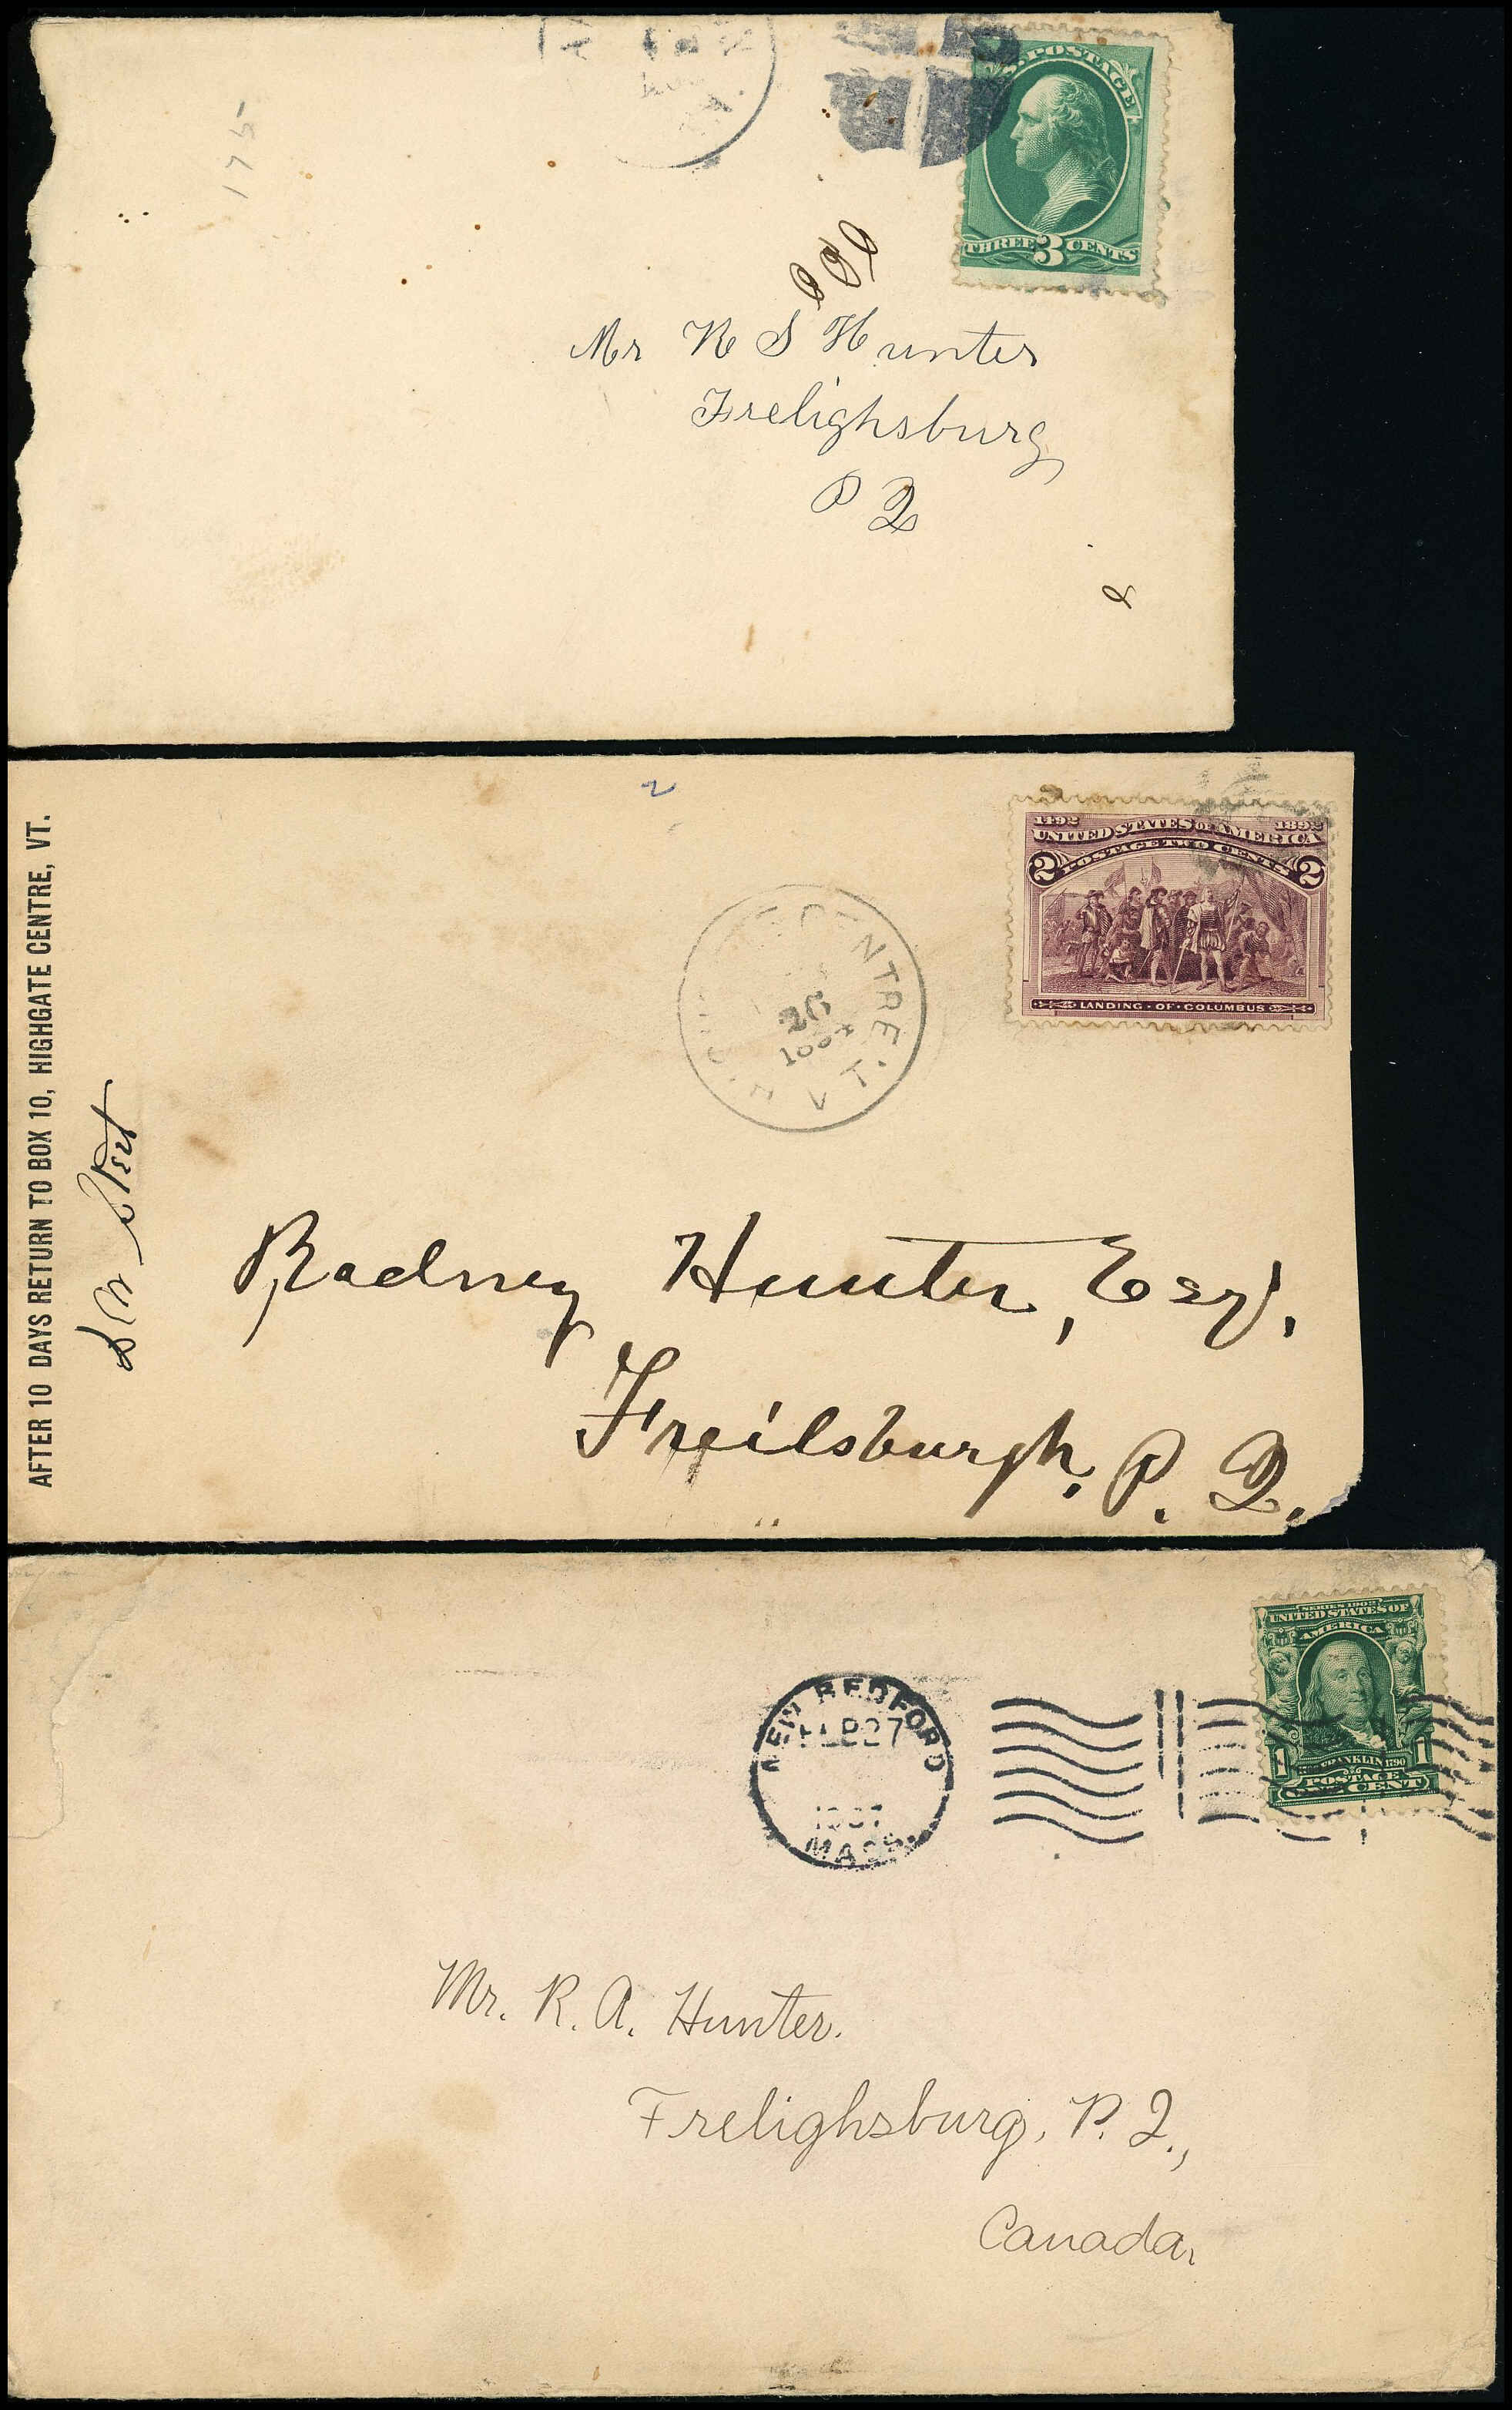 175
U.S. POSTAGE
THREE 3 CENTS
Mr R S Hunter
Frelighsburg
P Q
AFTER 10 DAYS RETURN TO BOX 10, HIGHGATE CENTRE, VT.
2
1492 1892
UNITED STATES OF AMERICA
2 POSTAGE TWO CENTS 2
LANDING · OF · COLUMBUS
CENTRE.
VT
26
Rodney Hunter, Esq.
Freilsburgh, P. Q.
SERIES 1902
UNITED STATES OF
AMERICA
1 FRANKLIN 1790 1
POSTAGE
ONE CENT
NEW BEDFORD
FEB 27
1907
MASS.
Mr. R. A. Hunter.
Frelighsburg, P. Q.,
Canada.